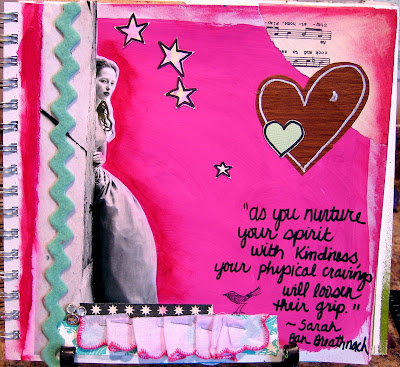 "as you nurture
your spirit
with kindness,
your physical cravings
will loosen
their grip."
~Sarah
Ban Breathnach